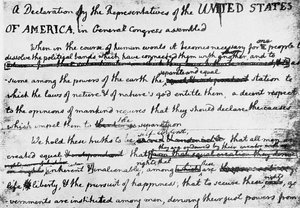 A Declaration by the Representatives of the UNITED STATES
OF AMERICA, in General Congress assembled
When in the course of human events it becomes necessary for one people
dissolve the political bands which have connected them with another, and to
sume among the powers of the earth the separate and equal station to
which the laws of nature & of nature's god entitle them, a decent respect
to the opinions of mankind requires that they should declare the causes
which impel them to the separation.
We hold these truths to be self-evident, that all men are
created equal that they are endowed by their creator with
inherent & inalienable; among which are
life & liberty, & the pursuit of happiness; that to secure these rights, go
vernments are instituted among men, deriving their just powers from